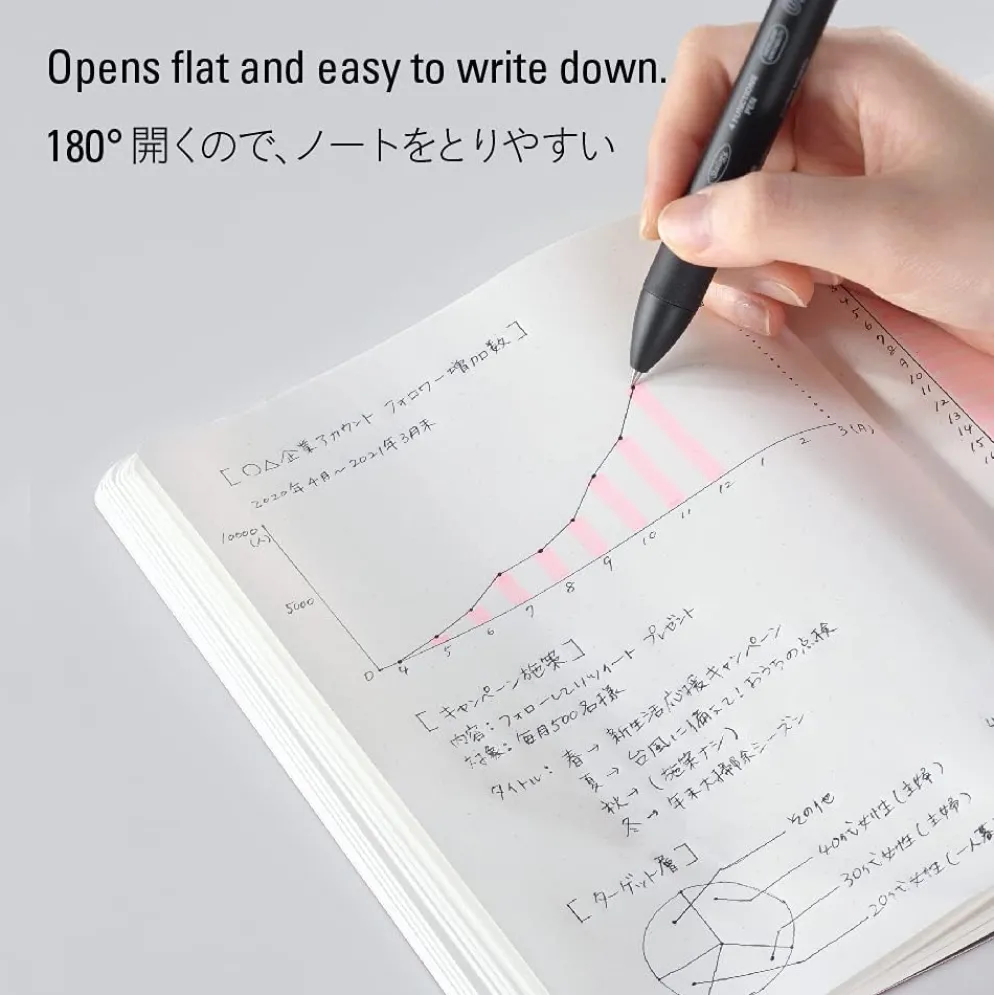 Opens flat and easy to write down.
180° 開くので、ノートをとりやすい
4 FUNCTIONS
PEN
[〇△企業アカウント フォロワー増加数]
2020年4月～2021年3月末
10000
(人)
5000
0
4 5 6 7 8 9 10 11 12 1 2 3(月)
4
5
6
7
8
9
10
11
12
13
14
15
[キャンペーン施策]
内容：フォローしてリツイート プレゼント
対象：毎月500名様
タイトル：春→新生活応援キャンペーン
夏→台風に備えて！おうちの点検
秋→(施策ナシ)
冬→年末大掃除シーズン
[ターゲット層]
その他
40代女性(主婦)
30代女性(主婦)
20代女性(一人暮